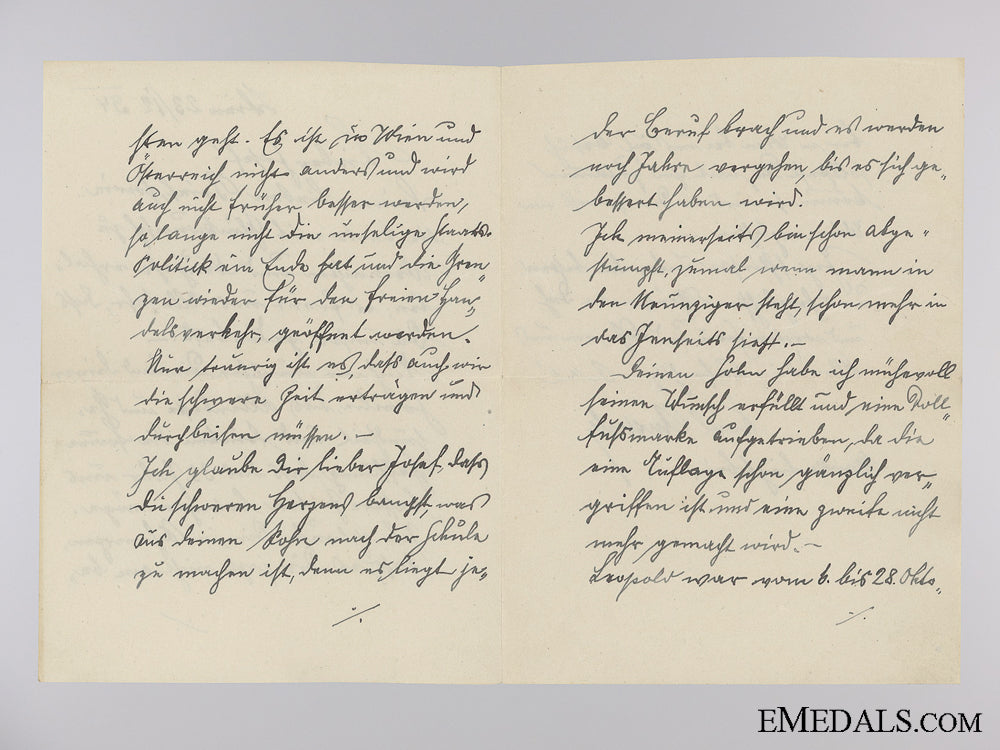 sten geht. Es ist in Wien und
Österreich nicht anders und wird
auch nicht früher besser werden,
so lange nicht die unselige Staats-
Politick ein Ende hat und die Gren
zen wieder für den freien Han-
delsverkehr, geöffnet werden.
Nur traurig ist es, dass auch wir
die schwere Zeit ertragen und
durchbeisen müssen. –
Ich glaube Dir lieber Josef, dass
du schweren Herzens bangst was
aus deinen Sohn nach der Schule
zu machen ist, denn es liegt je-
./.
der Beruf brach und es werden
noch Jahre vergehen, bis es sich ge-
bessert haben wird.
Ich meinerseits bin schon abge-
stumpft, zumal wenn mann in
den Neunziger steht, schon mehr in
das Jenseits sieht. –
Deinen Sohn habe ich mühevoll
seinen Wunsch erfüllt und eine Doll-
fussmarke aufgetrieben, da die
eine Auflage schon gänzlich ver-
griffen ist und eine zweite nicht
mehr gemacht wird. –
Leopold war vom 6. bis 28. Okto-
./.
EMEDALS.COM